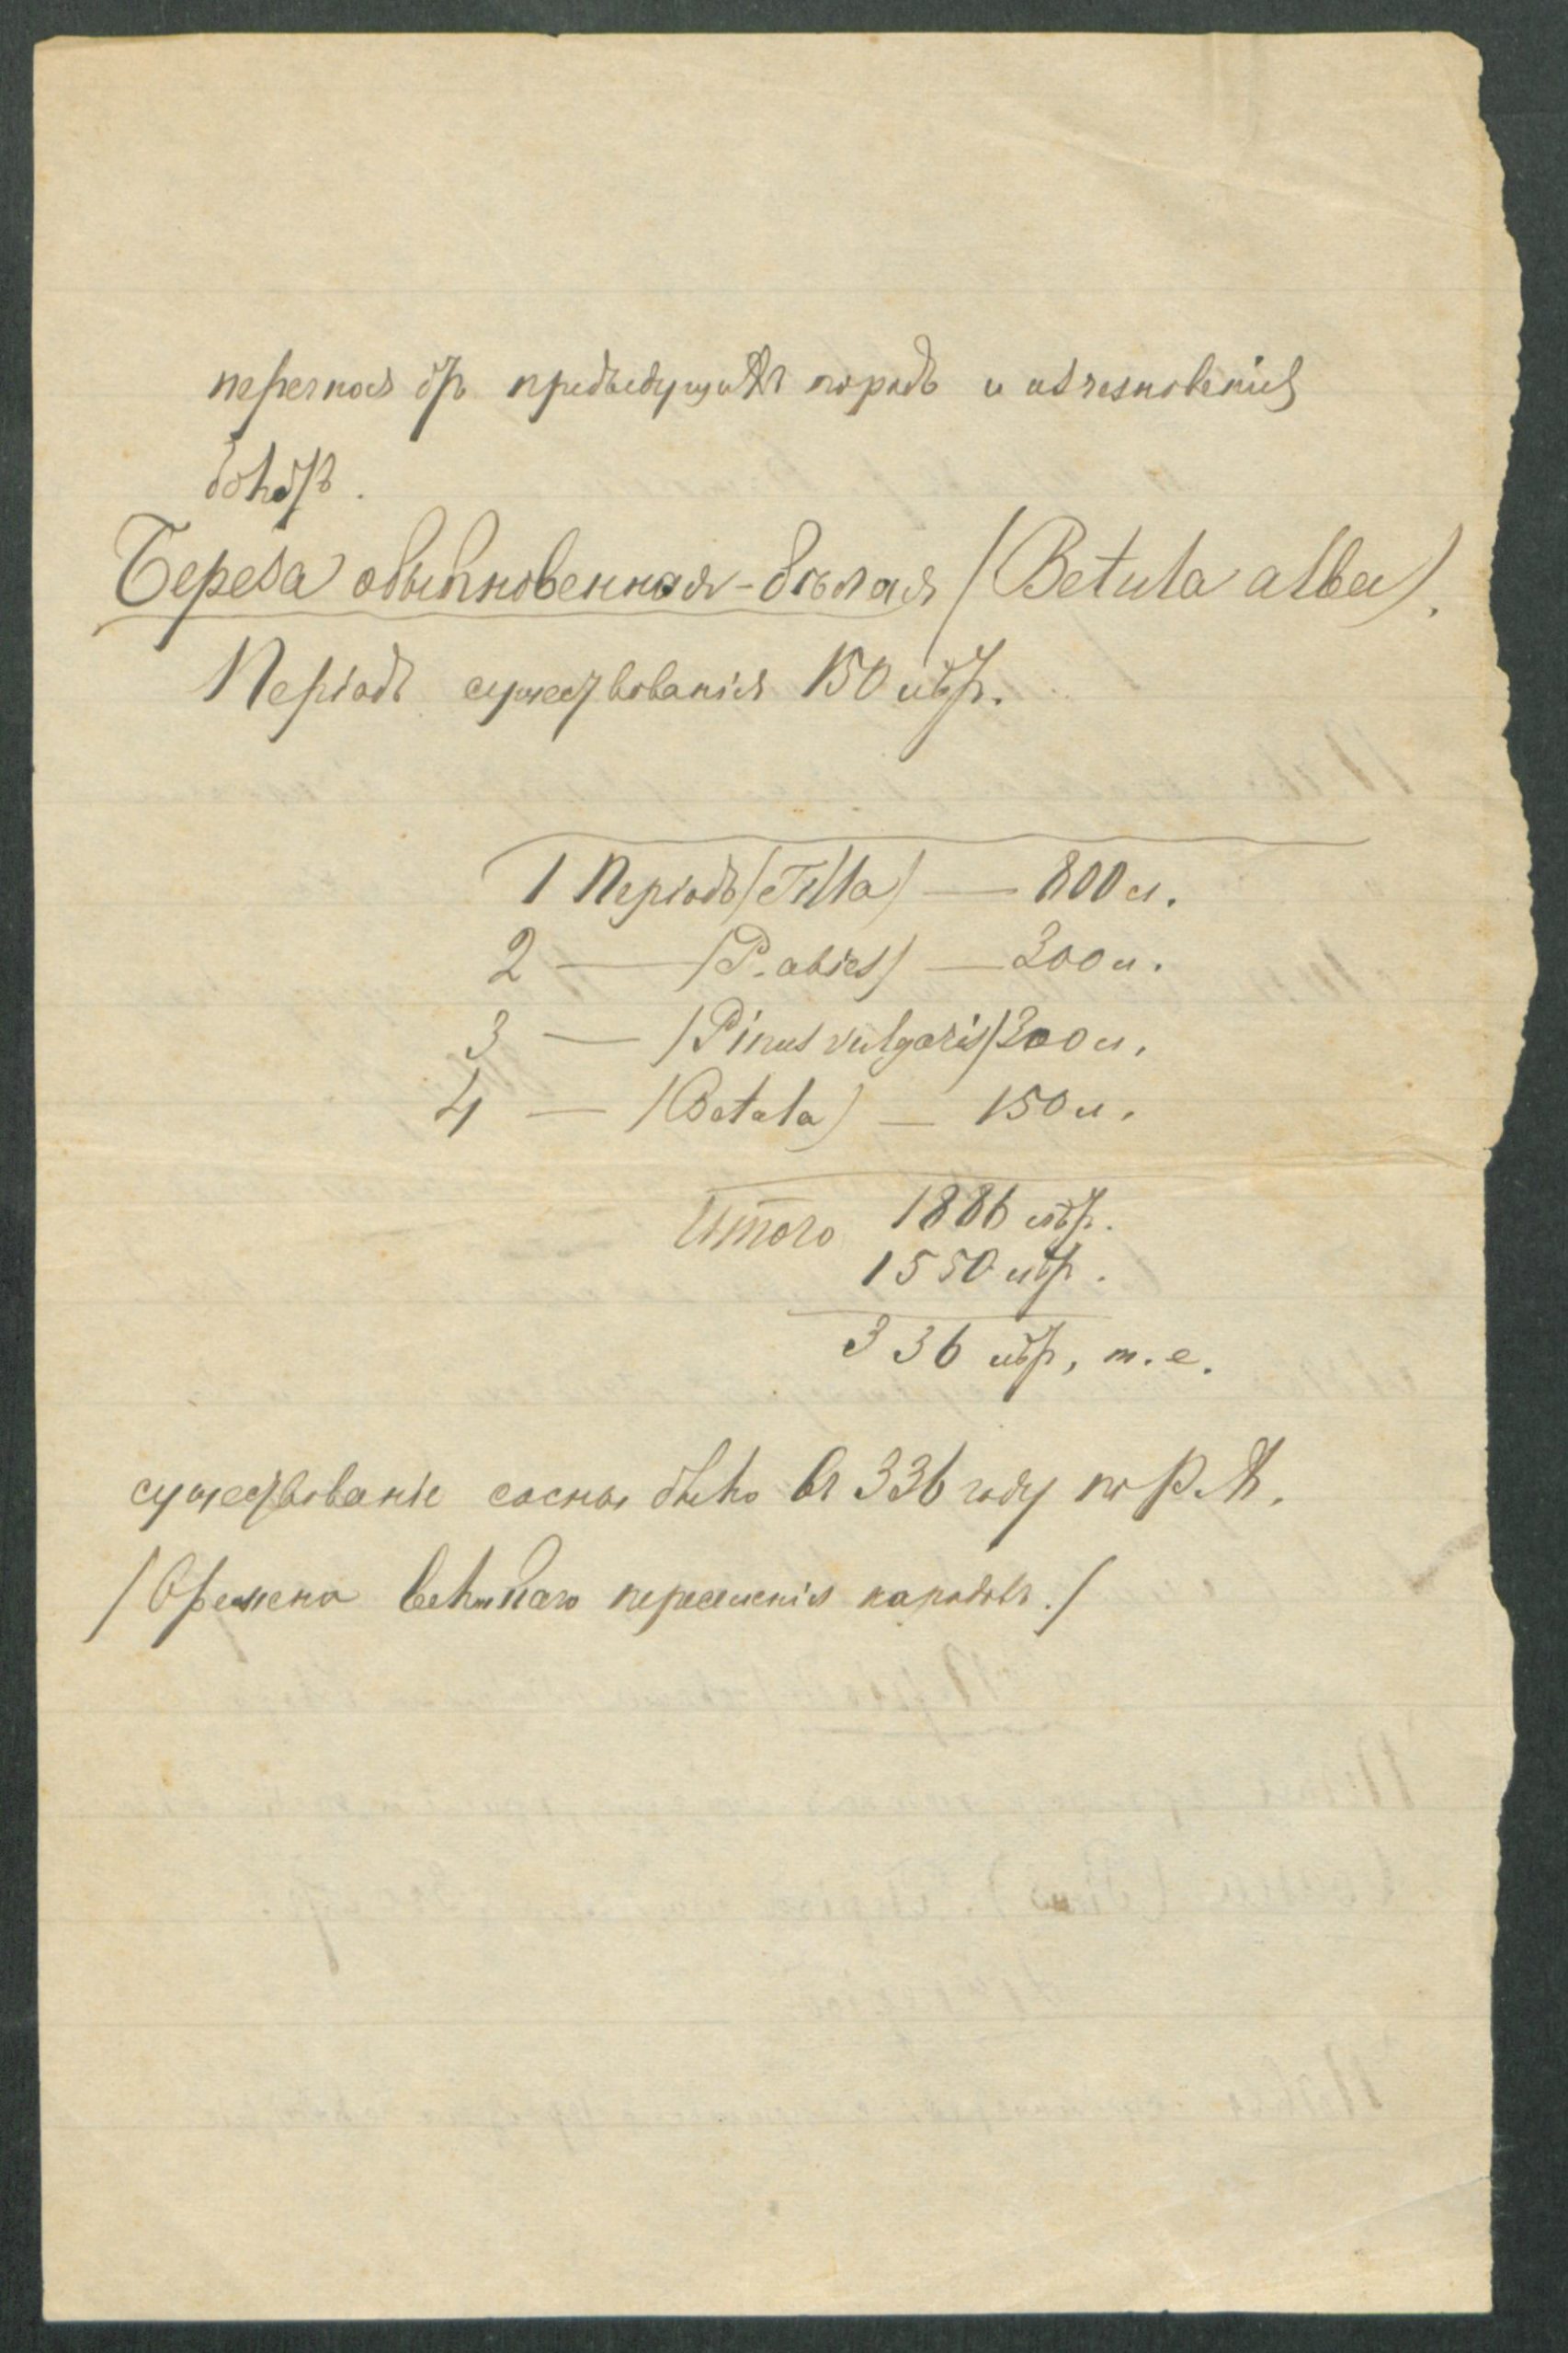 перегноя отъ предъедущихъ породъ и изчезновенія
болотъ.
Береза обыкновенная-бѣлая (Betula alba).
Періодъ существованія 150 лѣтъ.
1 Періодъ (Tilia) — 800 л.
2 — (P. abies) — 300 л.
3 — (Pinus vulgaris) 300 л.
4 — (Betula) — 150 л.
Итого 1886 лѣтъ.
1550 лѣтъ.
336 лѣтъ, т. е.
существованіе сосны было въ 336 году по Р. Х.
(Времена великаго переселенія народовъ.)